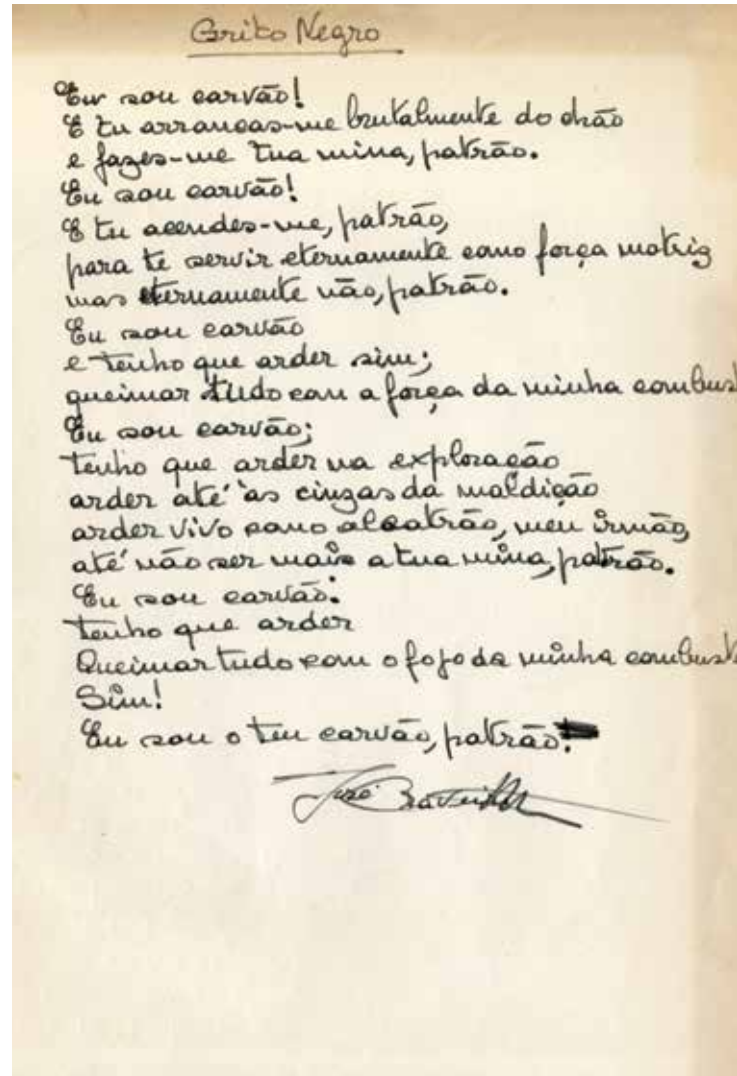 Grito Negro
Eu sou carvão!
E tu arrancas-me brutalmente do chão
e fazes-me tua mina, patrão.
Eu sou carvão!
E tu acendes-me, patrão,
para te servir eternamente como força motriz
mas eternamente não, patrão.
Eu sou carvão
e tenho que arder sim;
queimar tudo com a força da minha combust
Eu sou carvão;
tenho que arder na exploração
arder até às cinzas da maldição
arder vivo como alcatrão, meu irmão,
até não ser mais a tua mina, patrão.
Eu sou carvão.
Tenho que arder
Queimar tudo com o fogo da minha combust
Sim!
Eu sou o teu carvão, patrão.
José Craveirinha